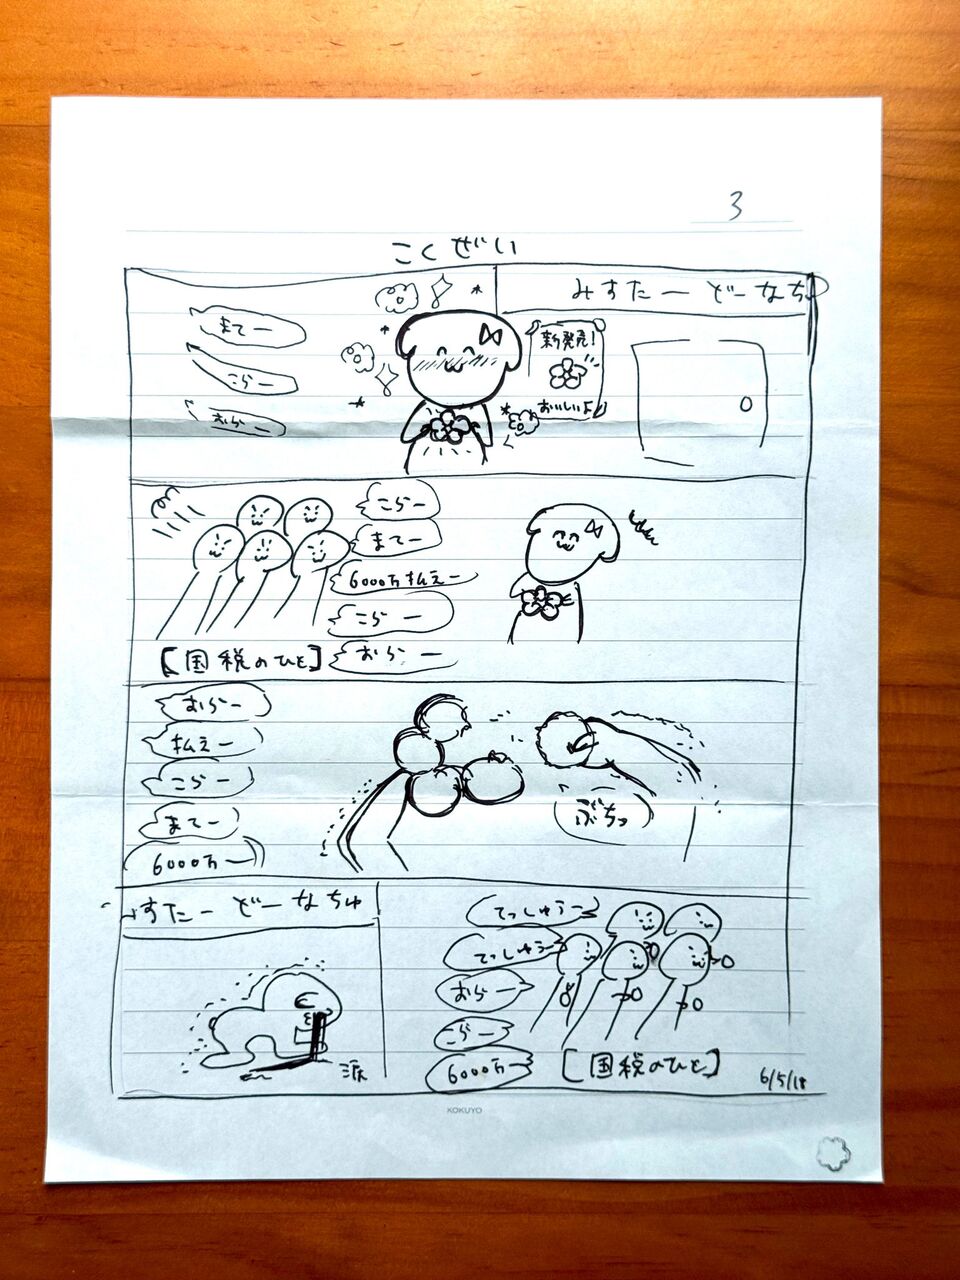 3
こくぜい
みすたーどーなち
新発売!
おいしいよ
まてー
こらー
おらー
こらー
まてー
6000万払えー
こらー
おらー
【国税のひと】
おらー
払えー
こらー
まてー
6000万ー
ぶちっ
てっしゅうー
てっしゅうー
おらー
こらー
6000万ー
【国税のひと】
みすたーどーなちゅ
涙
6/5/18
KOKUYO